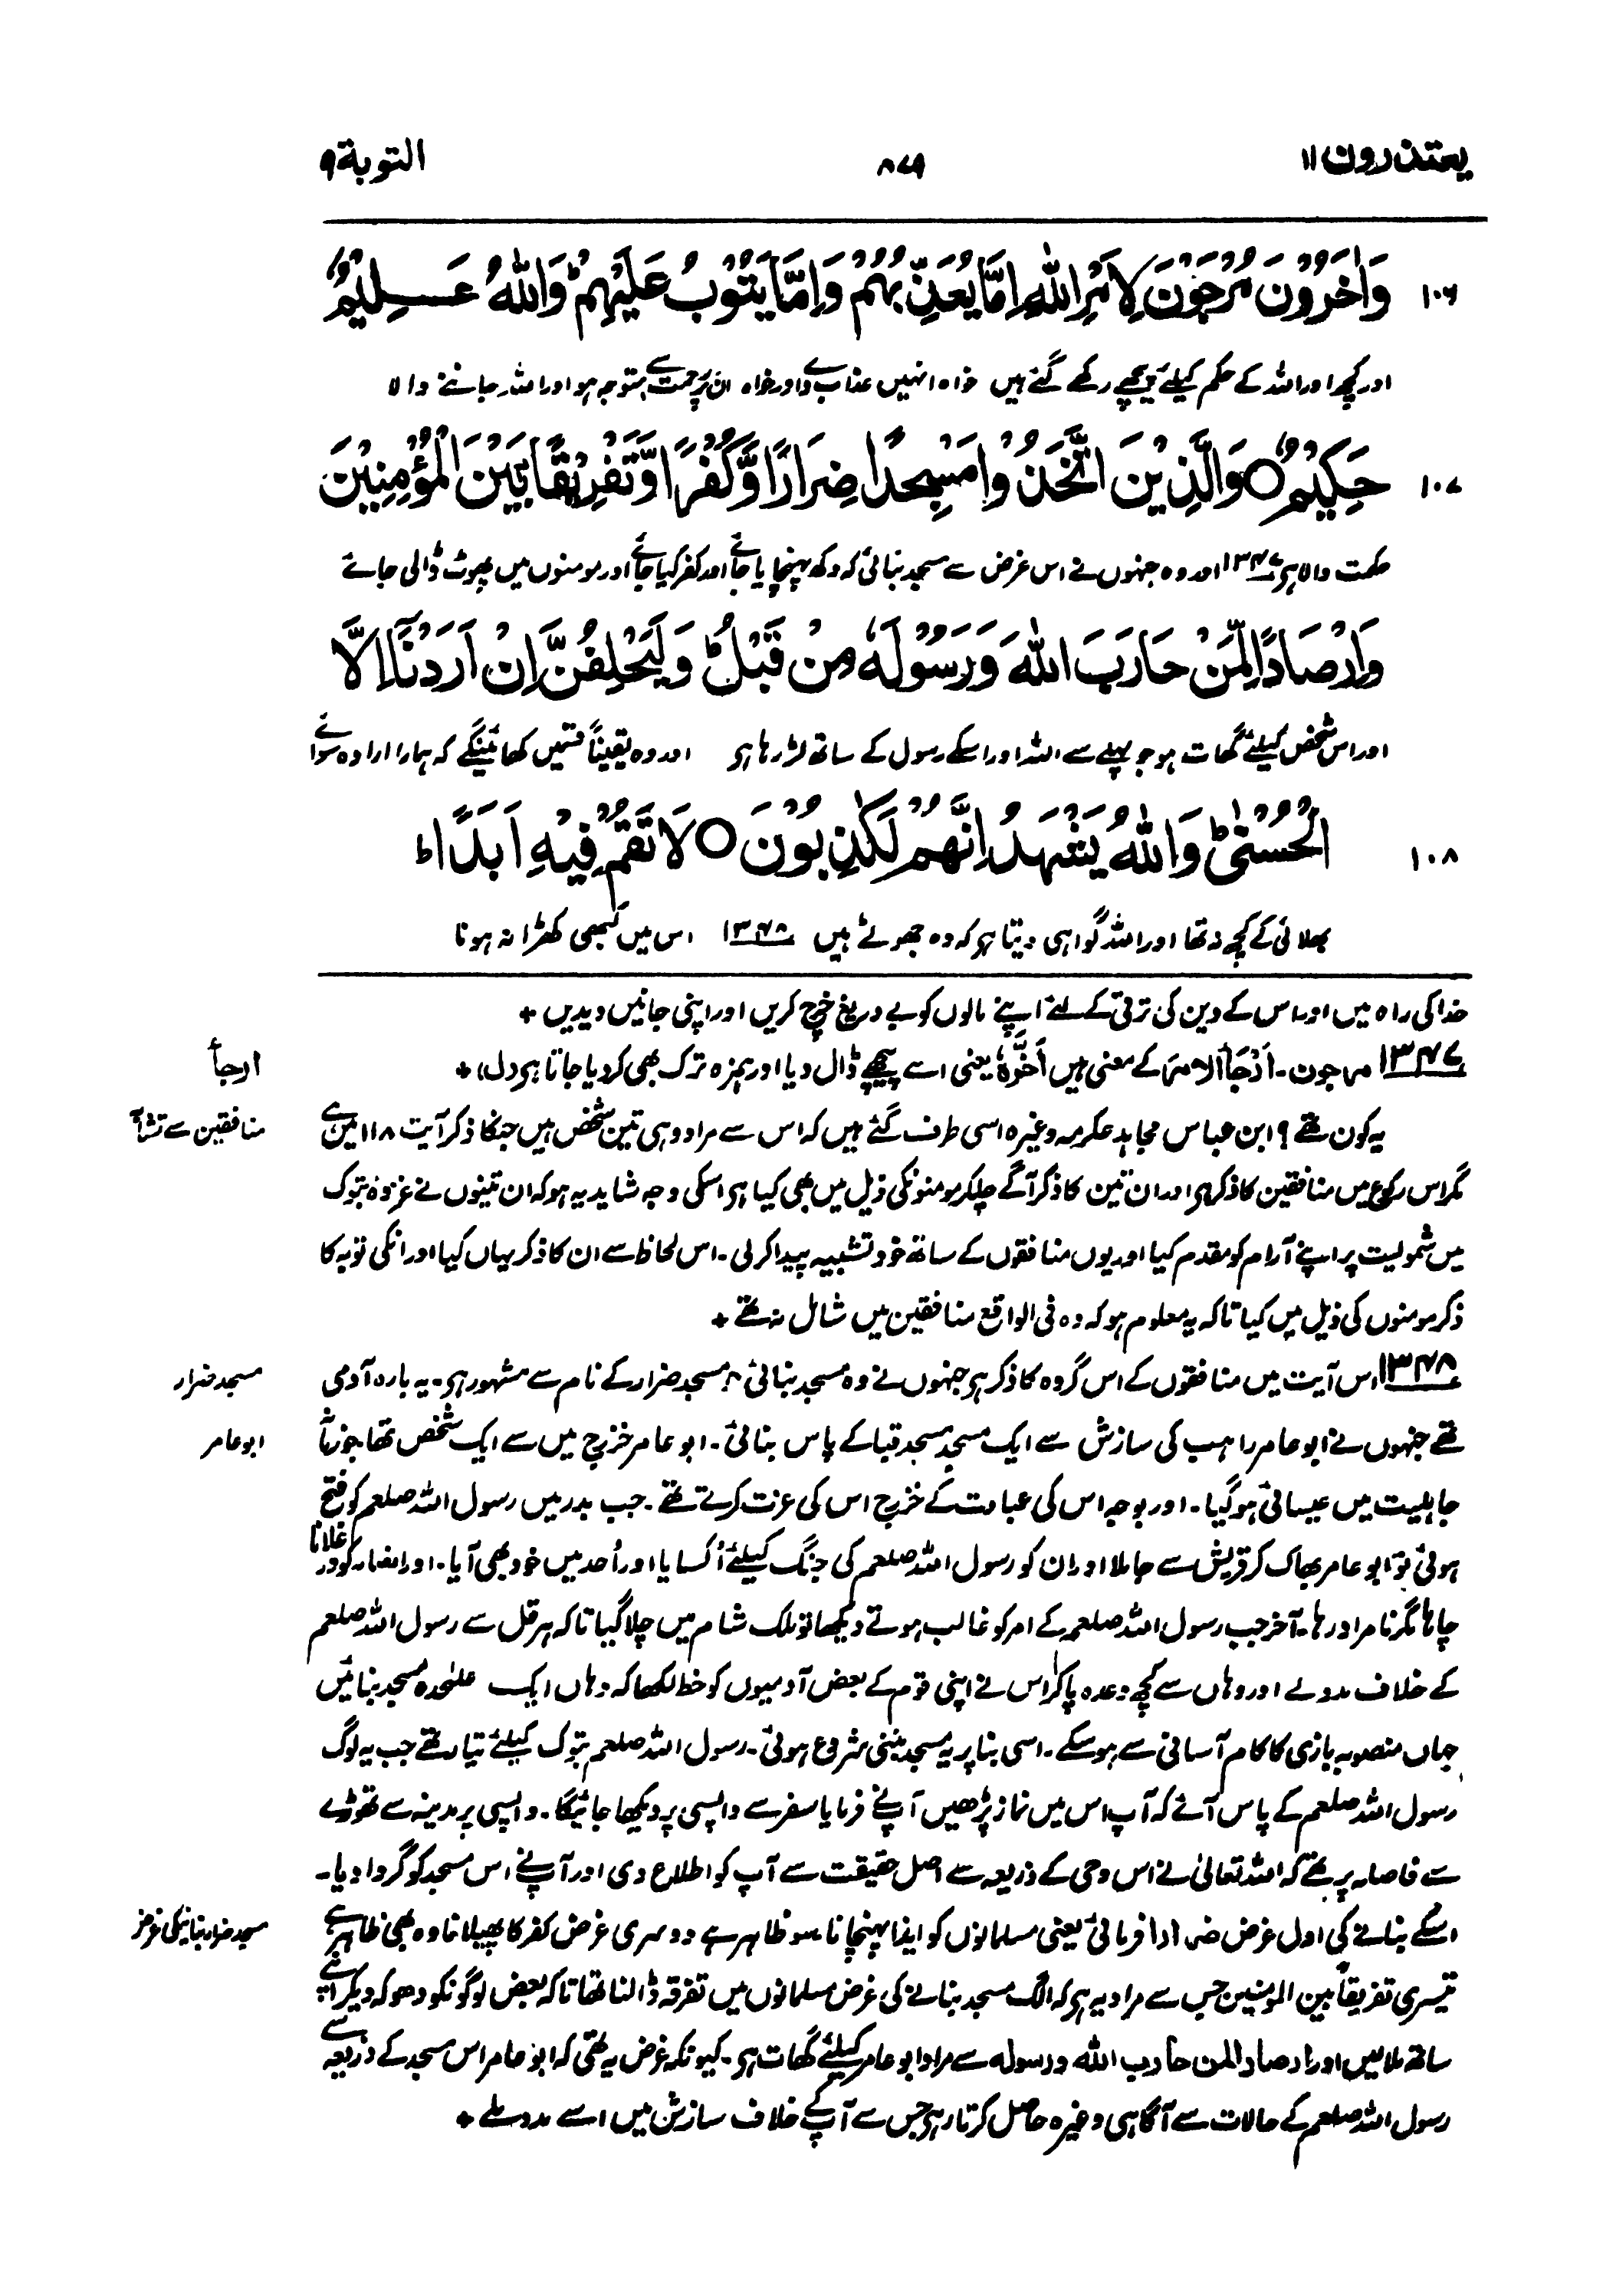 یعتذرون ۱۱
۸۷۹
التوبة ۹
۱۰۶ وَاٰخَرُوْنَ مُرْجَوْنَ لِاَمْرِ اللّٰهِ اِمَّا يُعَذِّبُهُمْ وَاِمَّا يَتُوْبُ عَلَيْهِمْ ؕ وَاللّٰهُ عَلِيْمٌ
اور کچھ اور اللہ کے حکم کیلئے پیچھے رکھے گئے ہیں خواہ انہیں عذاب دے اور خواہ ان پر رحمت سے متوجہ ہو اور اللہ جاننے والا
۱۰۷ حَكِيْمٌ ○ وَالَّذِيْنَ اتَّخَذُوْا مَسْجِدًا ضِرَارًا وَّكُفْرًا وَّتَفْرِيْقًا بَيْنَ الْمُؤْمِنِيْنَ
حکمت والا ہے ۱۳۴۷ اور وہ جنہوں نے اس غرض سے مسجد بنائی کہ دکھ پہنچایا جائے اور کفر کیا جائے اور مومنوں میں پھوٹ ڈالی جائے
وَاِرْصَادًا لِّمَنْ حَارَبَ اللّٰهَ وَرَسُوْلَهٗ مِنْ قَبْلُ ؕ وَلَيَحْلِفُنَّ اِنْ اَرَدْنَاۤ اِلَّا
اور اس شخص کیلئے گھات ہو جو پہلے سے اللہ اور اسکے رسول کے ساتھ لڑ رہا ہے اور وہ یقیناً قسمیں کھائینگے کہ ہمارا ارادہ سوائے
۱۰۸ الْحُسْنٰى ؕ وَاللّٰهُ يَشْهَدُ اِنَّهُمْ لَكٰذِبُوْنَ ○ لَا تَقُمْ فِيْهِ اَبَدًا ؕ
بھلائی کے کچھ نہ تھا اور اللہ گواہی دیتا ہے کہ وہ جھوٹے ہیں ۱۳۴۸ اس میں کبھی کھڑا نہ ہونا
خدا کی راہ میں اور اس کے دین کی ترقی کے لئے اپنے مالوں کو بے دریغ خرچ کریں اور اپنی جانیں دیدیں +
۱۳۴۷ مرجون۔ اَرْجَأَ الامرَ کے معنی ہیں اَخَّرَہٗ یعنی اسے پیچھے ڈال دیا اور ہمزہ ترک بھی کر دیا جاتا ہے (ل) +
ارجأ
یہ کون تھے؟ ابن عباس مجاہد عکرمہ وغیرہ اسی طرف گئے ہیں کہ اس سے مراد وہی تین شخص ہیں جنکا ذکر آیت ۱۱۸ میں ہے
منافقین سے تشابہ
مگر اس رکوع میں منافقین کا ذکر ہے اور ان تین کا ذکر آگے چلکر مومنونکی ذیل میں بھی کیا ہے اسکی وجہ شاید یہ ہو کہ ان تینوں نے غزوہ تبوک
میں شمولیت پر اپنے آرام کو مقدم کیا اور یوں منافقوں کے ساتھ خود تشبیہ پیدا کر لی۔ اس لحاظ سے ان کا ذکر یہاں کیا اور انکی توبہ کا
ذکر مومنوں کی ذیل میں کیا تاکہ یہ معلوم ہو کہ وہ فی الواقع منافقین میں شامل نہ تھے +
۱۳۴۸ اس آیت میں منافقوں کے اس گروہ کا ذکر ہے جنہوں نے وہ مسجد بنائی جو مسجد ضرار کے نام سے مشہور ہے۔ یہ بارہ آدمی
مسجد ضرار
تھے جنہوں نے ابو عامر راہب کی سازش سے ایک مسجد مسجد قبا کے پاس بنائی۔ ابو عامر خزرج میں سے ایک شخص تھا جو زمانہ
ابو عامر
جاہلیت میں عیسائی ہو گیا۔ اور بوجہ اس کی عبادت کے خزرج اس کی عزت کرتے تھے۔ جب بدر میں رسول اللہ صلعم کو فتح
ہوئی تو ابو عامر بھاگ کر قریش سے جا ملا اور ان کو رسول اللہ صلعم کی جنگ کیلئے اُکسایا اور اُحد میں خود بھی آیا۔ اور انصار کو ورغلانا
چاہا مگر نامراد رہا۔ آخر جب رسول اللہ صلعم کے امر کو غالب ہوتے دیکھا تو ملک شام میں چلا گیا تاکہ ہرقل سے رسول اللہ صلعم
کے خلاف مدد لے اور وہاں سے کچھ وعدہ پاکر اس نے اپنی قوم کے بعض آدمیوں کو خط لکھا کہ وہاں ایک علٰحدہ مسجد بنائیں
جہاں منصوبہ بازی کا کام آسانی سے ہو سکے۔ اسی بنا پر یہ مسجد بننی شروع ہوئی۔ رسول اللہ صلعم تبوک کیلئے تیار تھے جب یہ لوگ
رسول اللہ صلعم کے پاس آئے کہ آپ اس میں نماز پڑھیں آپنے فرمایا سفر سے واپسی پر دیکھا جائیگا۔ واپسی پر مدینہ سے تھوڑے
سے فاصلہ پر تھے کہ اللہ تعالیٰ نے اس وحی کے ذریعہ سے اصل حقیقت سے آپ کو اطلاع دی اور آپنے اس مسجد کو گروا دیا۔
اسکے بنانے کی اول غرض ضرارا فرمائی یعنی مسلمانوں کو ایذا پہنچانا سو ظاہر ہے دوسری غرض کفر کا پھیلانا وہ بھی ظاہر ہے
مسجد ضرار بنانیکی غرض
تیسری تفریقاً بین المومنین جس سے مراد یہ ہے کہ الگ مسجد بنانے کی غرض مسلمانوں میں تفرقہ ڈالنا تھا تاکہ بعض لوگونکو دھوکہ دیکر اپنے
ساتھ ملا لیں اور ارصادا لمن حارب اللہ ورسولہ سے مراد ابو عامر کیلئے گھات ہے۔ کیونکہ غرض یہ تھی کہ ابو عامر اس مسجد کے ذریعہ سے
رسول اللہ صلعم کے حالات سے آگاہی وغیرہ حاصل کرتا رہے جس سے آپ کے خلاف سازش میں اسے مدد ملے +